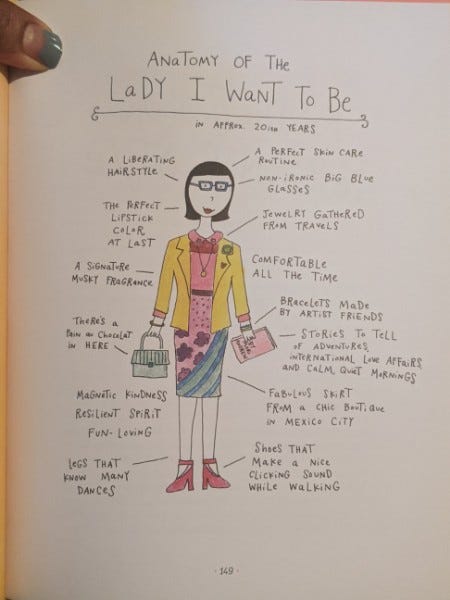 ANATOMY OF THE
LADY I WANT TO BE
IN APPROX. 20ISH YEARS
A LIBERATING
HAIRSTYLE
A PERFECT SKIN CARE
ROUTINE
NON-IRONIC BIG BLUE
GLASSES
THE PERFECT
LIPSTICK
COLOR
AT LAST
JEWELRY GATHERED
FROM TRAVELS
A SIGNATURE
MUSKY FRAGRANCE
COMFORTABLE
ALL THE TIME
BRACELETS MADE
BY ARTIST FRIENDS
THERE'S A
PAIN AU CHOCOLAT
IN HERE
STORIES TO TELL
OF ADVENTURES,
INTERNATIONAL LOVE AFFAIRS,
AND CALM, QUIET MORNINGS
MAGNETIC KINDNESS
RESILIENT SPIRIT
FUN-LOVING
FABULOUS SKIRT
FROM A CHIC BOUTIQUE
IN MEXICO CITY
LEGS THAT
KNOW MANY
DANCES
SHOES THAT
MAKE A NICE
CLICKING SOUND
WHILE WALKING
· 149 ·